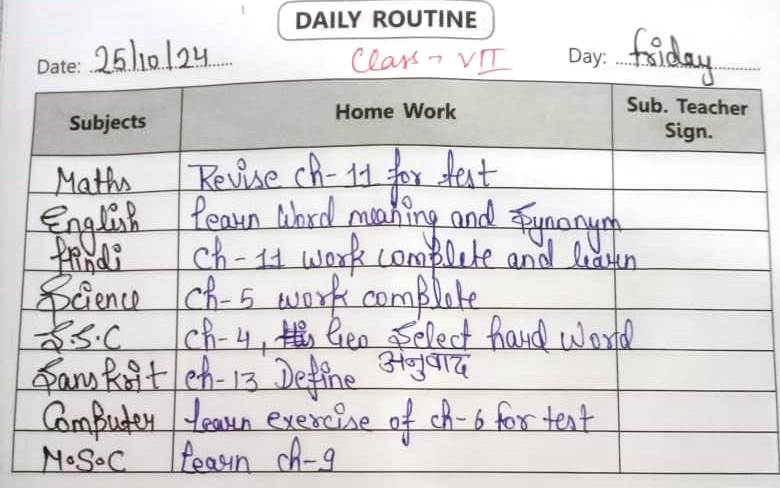 DAILY ROUTINE
Date: 25/10/24 Class → VII Day: friday
Subjects Home Work Sub. Teacher Sign.
Maths Revise ch-11 for test
English learn Word meaning and Synonym
Hindi ch-11 work complete and learn
Science ch-5 work complete
S.S.C ch-4, Geo Select hard Word
Sanskrit ch-13 Define अनुवाद
Computer learn exercise of ch-6 for test
M.S.C learn ch-9